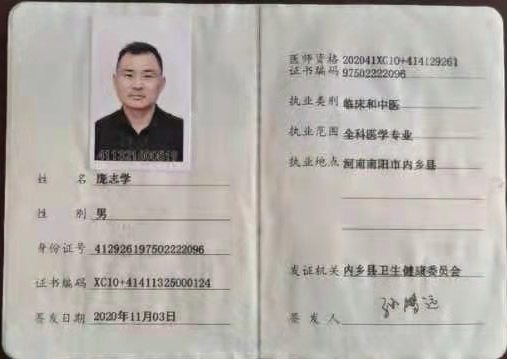 411321000619
姓 名 庞志学
性 别 男
身份证号 412926197502222096
证书编码 XC10+41411325000124
签发日期 2020年11月03日
医师资格 202041XC10+414129261
证书编码 97502222096
执业类别 临床和中医
执业范围 全科医学专业
执业地点 河南南阳市内乡县
发证机关 内乡县卫生健康委员会
签 发 人 孙鹏运